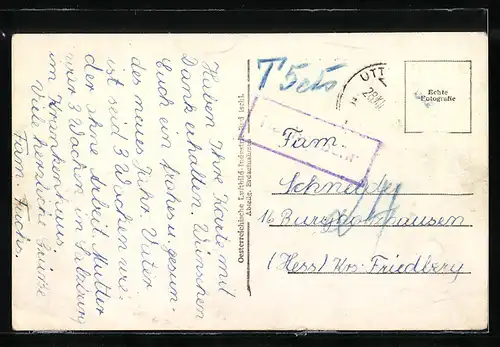 Haben Ihre Karte mit
Dank erhalten. Wünschen
Euch ein frohes u. gesun-
des neues Jahr. Vater
ist seid 3 Wochen wie-
der ohne Arbeit. Mutter
war 3 Wochen in Salzburg
im Krankenhaus.
Viele herzliche Grüße
Fam. Fuchs.
Oesterreichische Luftbild-Industrie, Bad Ischl.
T 5 cts
UTT
28.XII.
Echte
Fotografie
Fam.
Schneider
16 Burggräfenhausen
(Hess) Krs. Friedberg